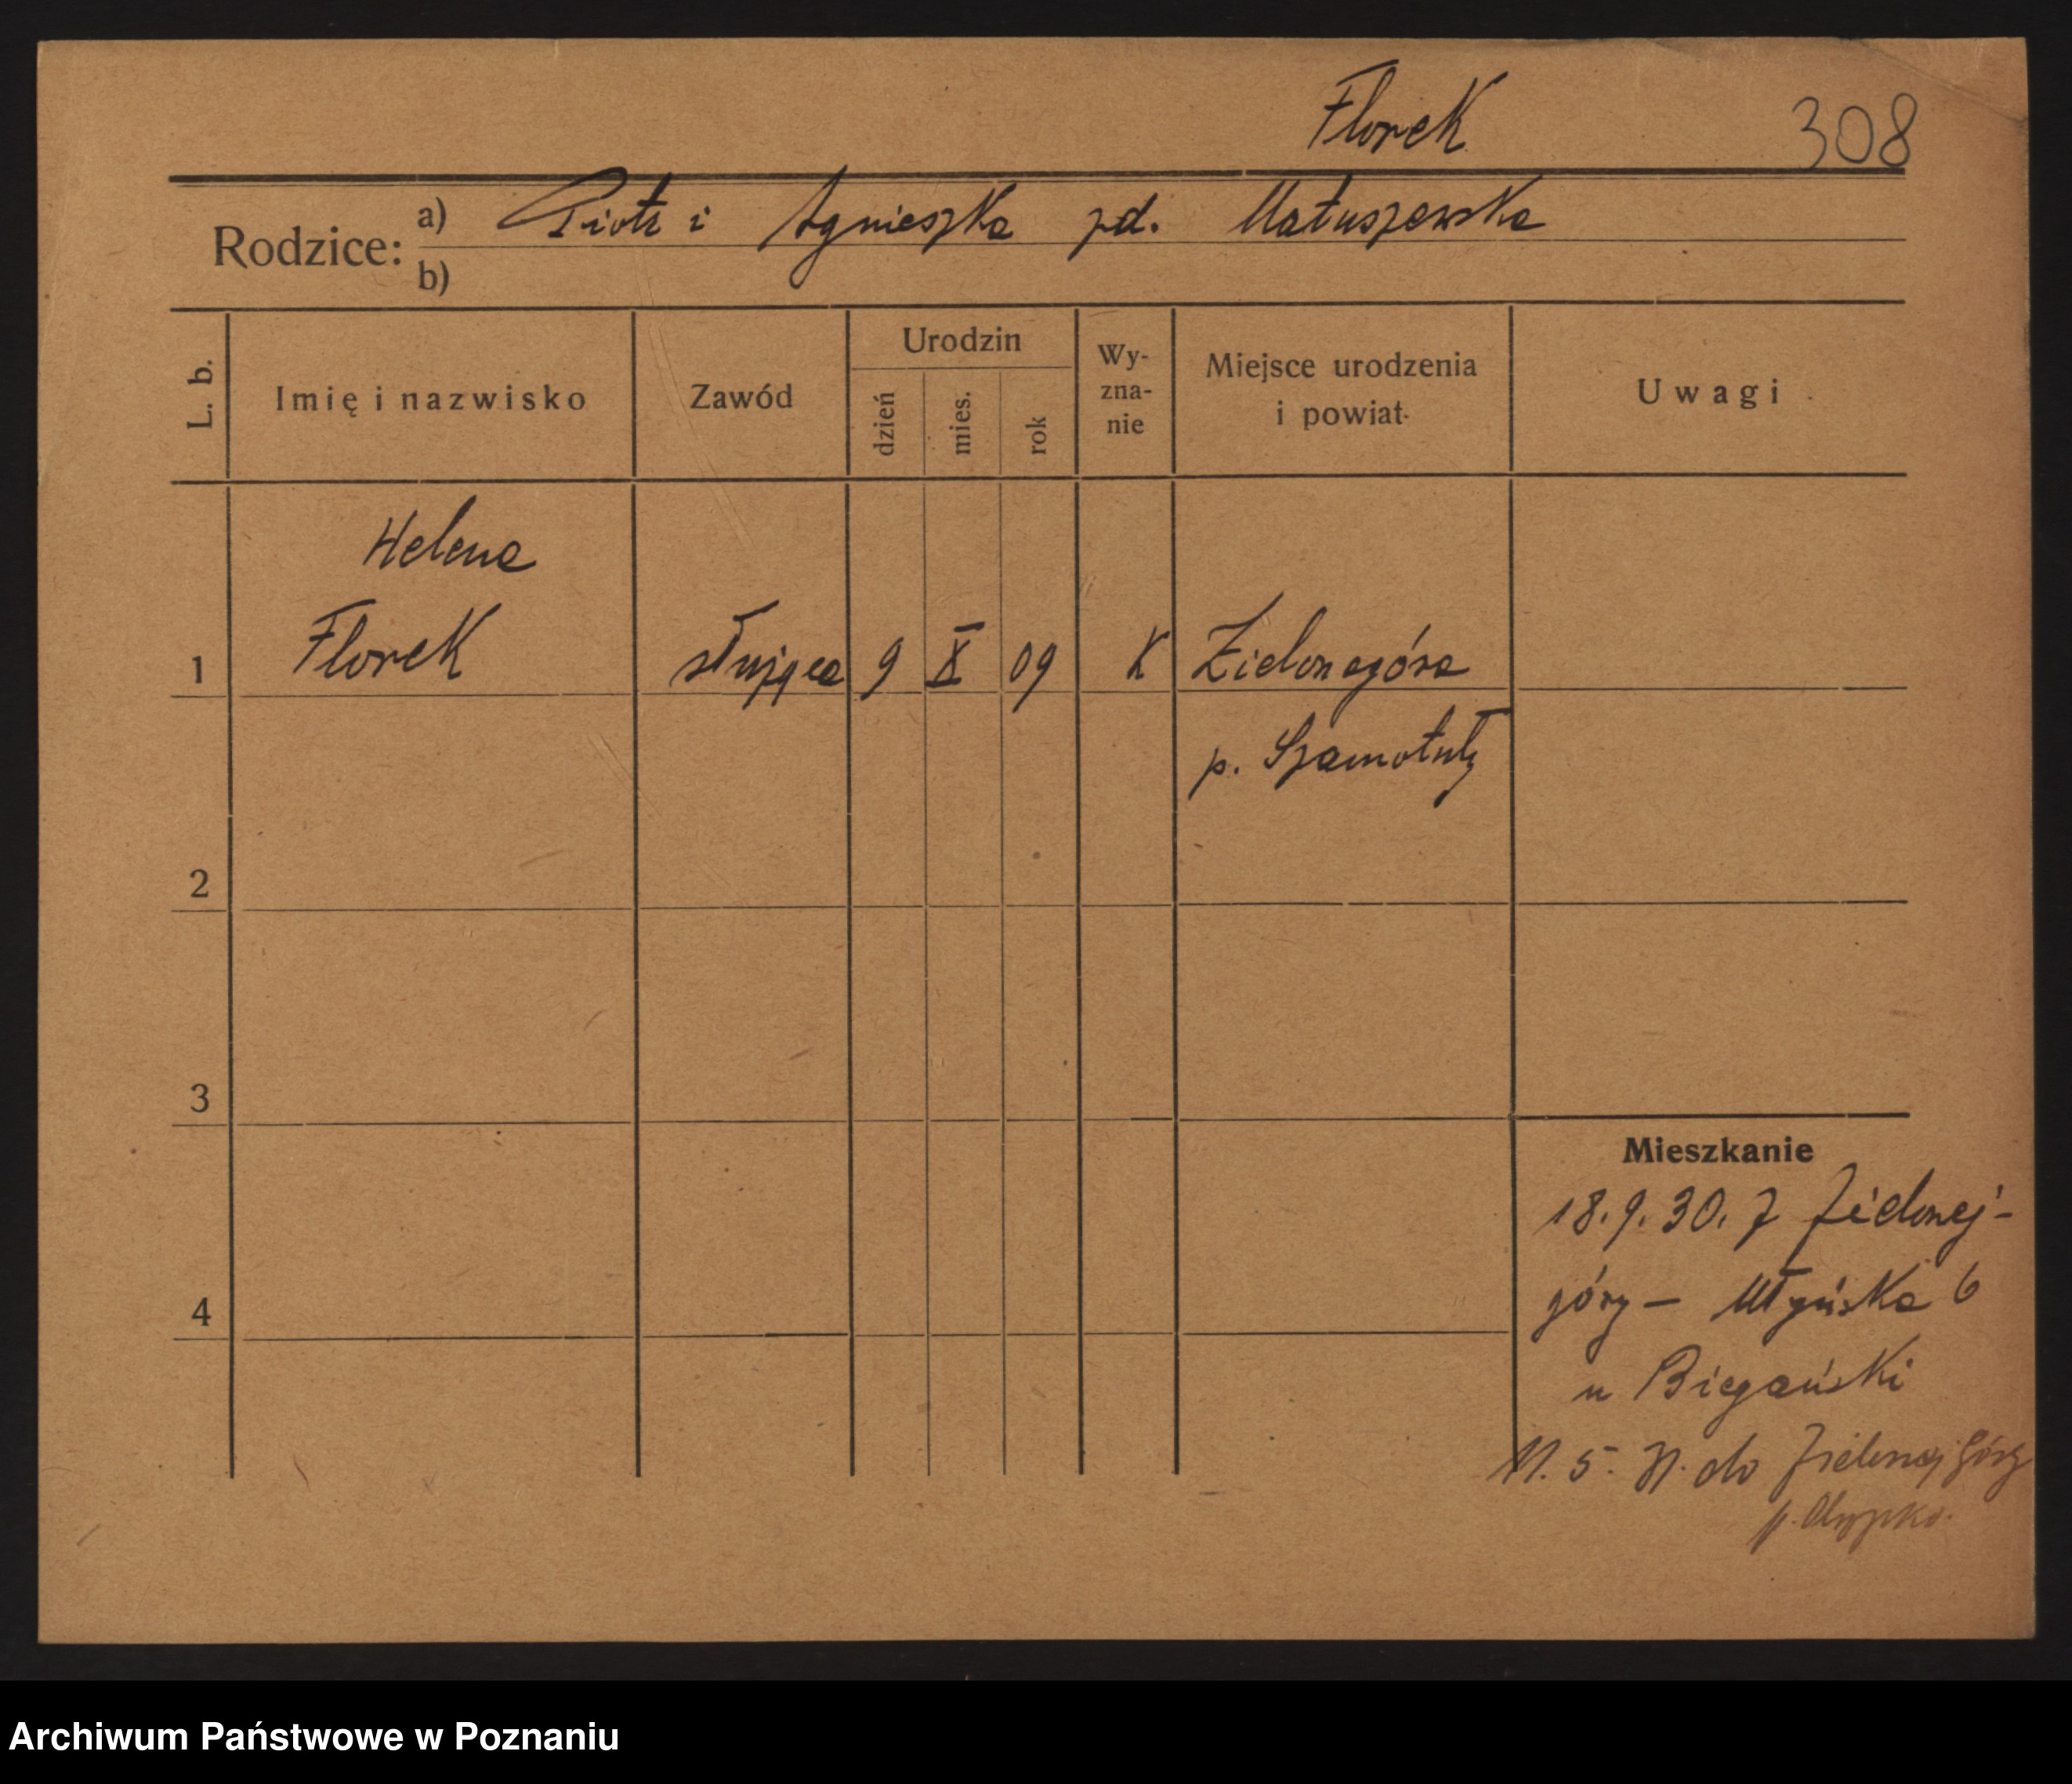 Florek 308
Rodzice: a) Piotr i Agnieszka zd. Matuszewska
b)
L. b. Imię i nazwisko Zawód Urodzin dzień mies. rok Wy-zna-nie Miejsce urodzenia i powiat Uwagi
Helena
1 Florek służąca 9 X 09 K Zielonagóra
p. Szamotuły
2
3
Mieszkanie
18.9.30. z Zielonej-
4 góry – Młyńska 6
u Biegański
do Zielonej Góry
Archiwum Państwowe w Poznaniu